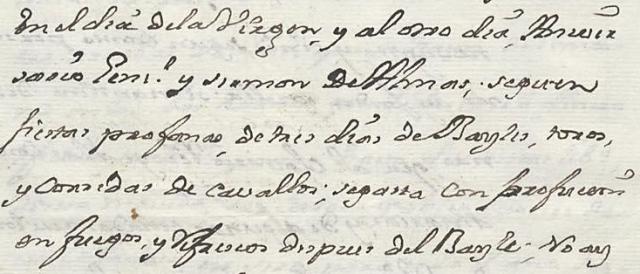 en el dia de la Virgen, y al otro dia, Aniver
sario Genl. y sermon de Almas, seguen
fiestas profanas, de tres dias de Bayles, toros,
y Corridas de cavallos; se gasta con profucion
en fuegos, y refrescos despues del Bayle. No ay